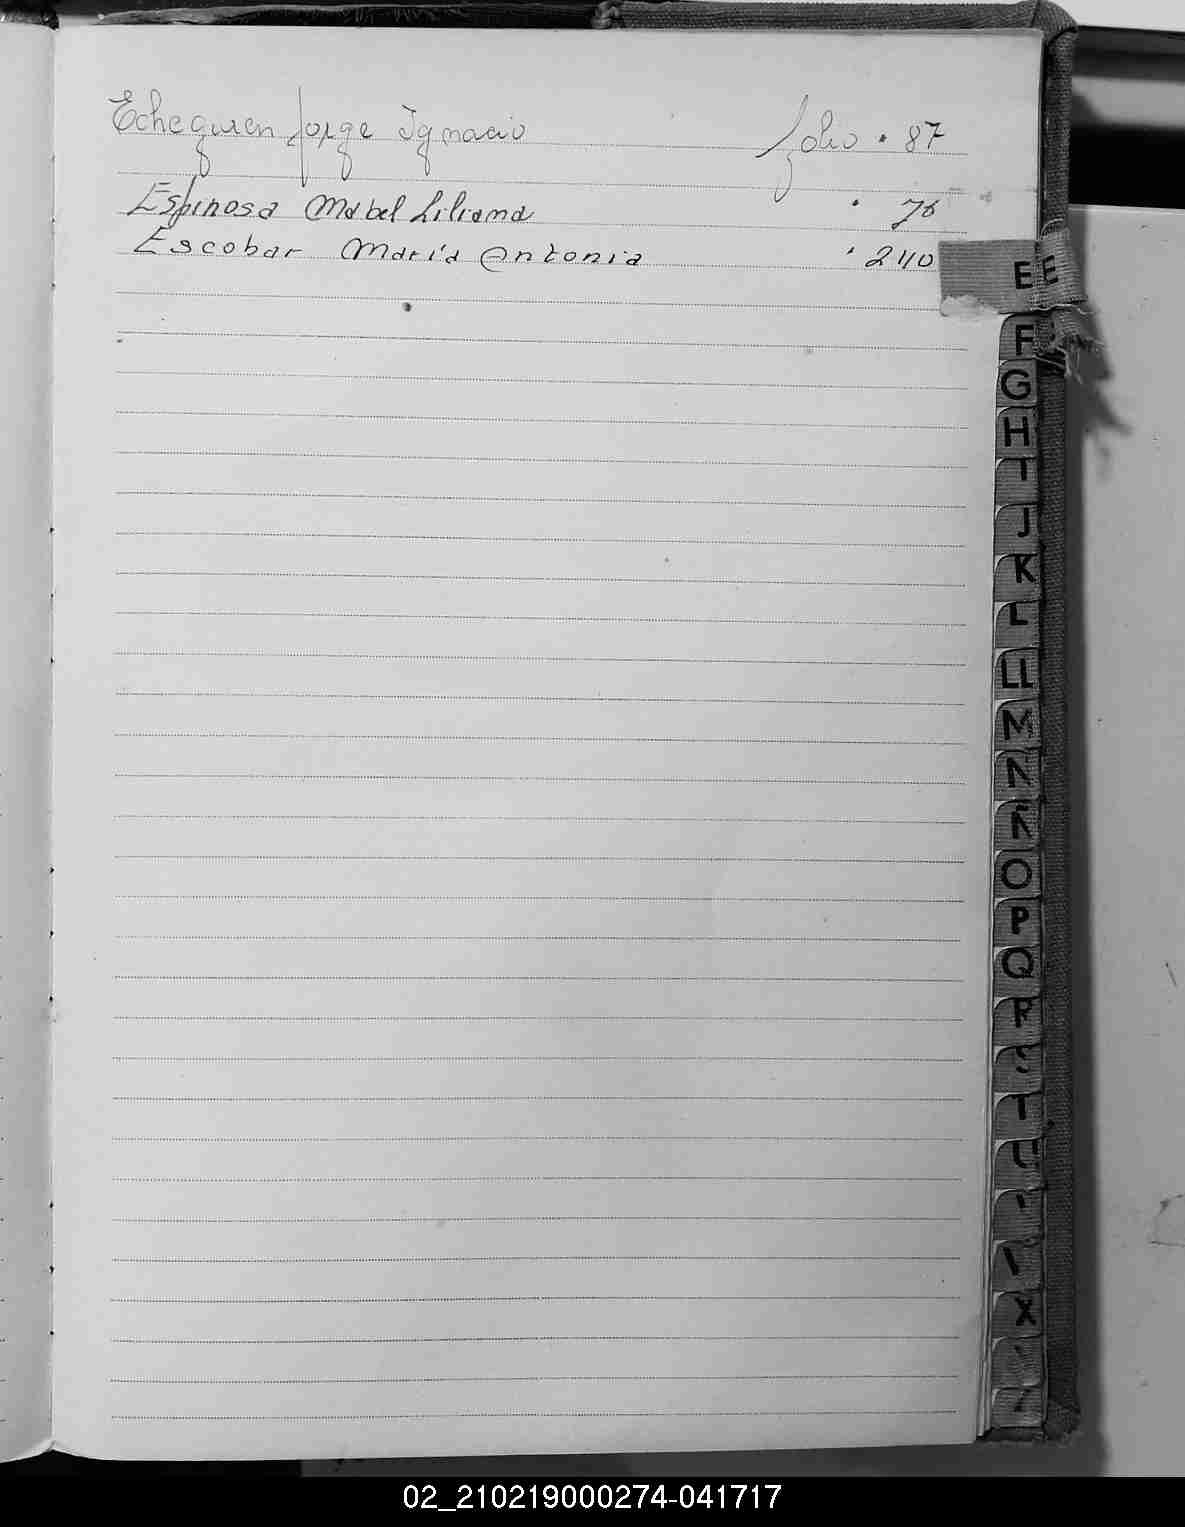 Echeguren Jorge Ignacio folio • 87
Espinosa Mabel Liliana • 76
Escobar María Antonia • 240
E E
F
G
H
I
J
K
L
LL
M
N
Ñ
O
P
Q
R
S
T
U
X
02_210219000274-041717